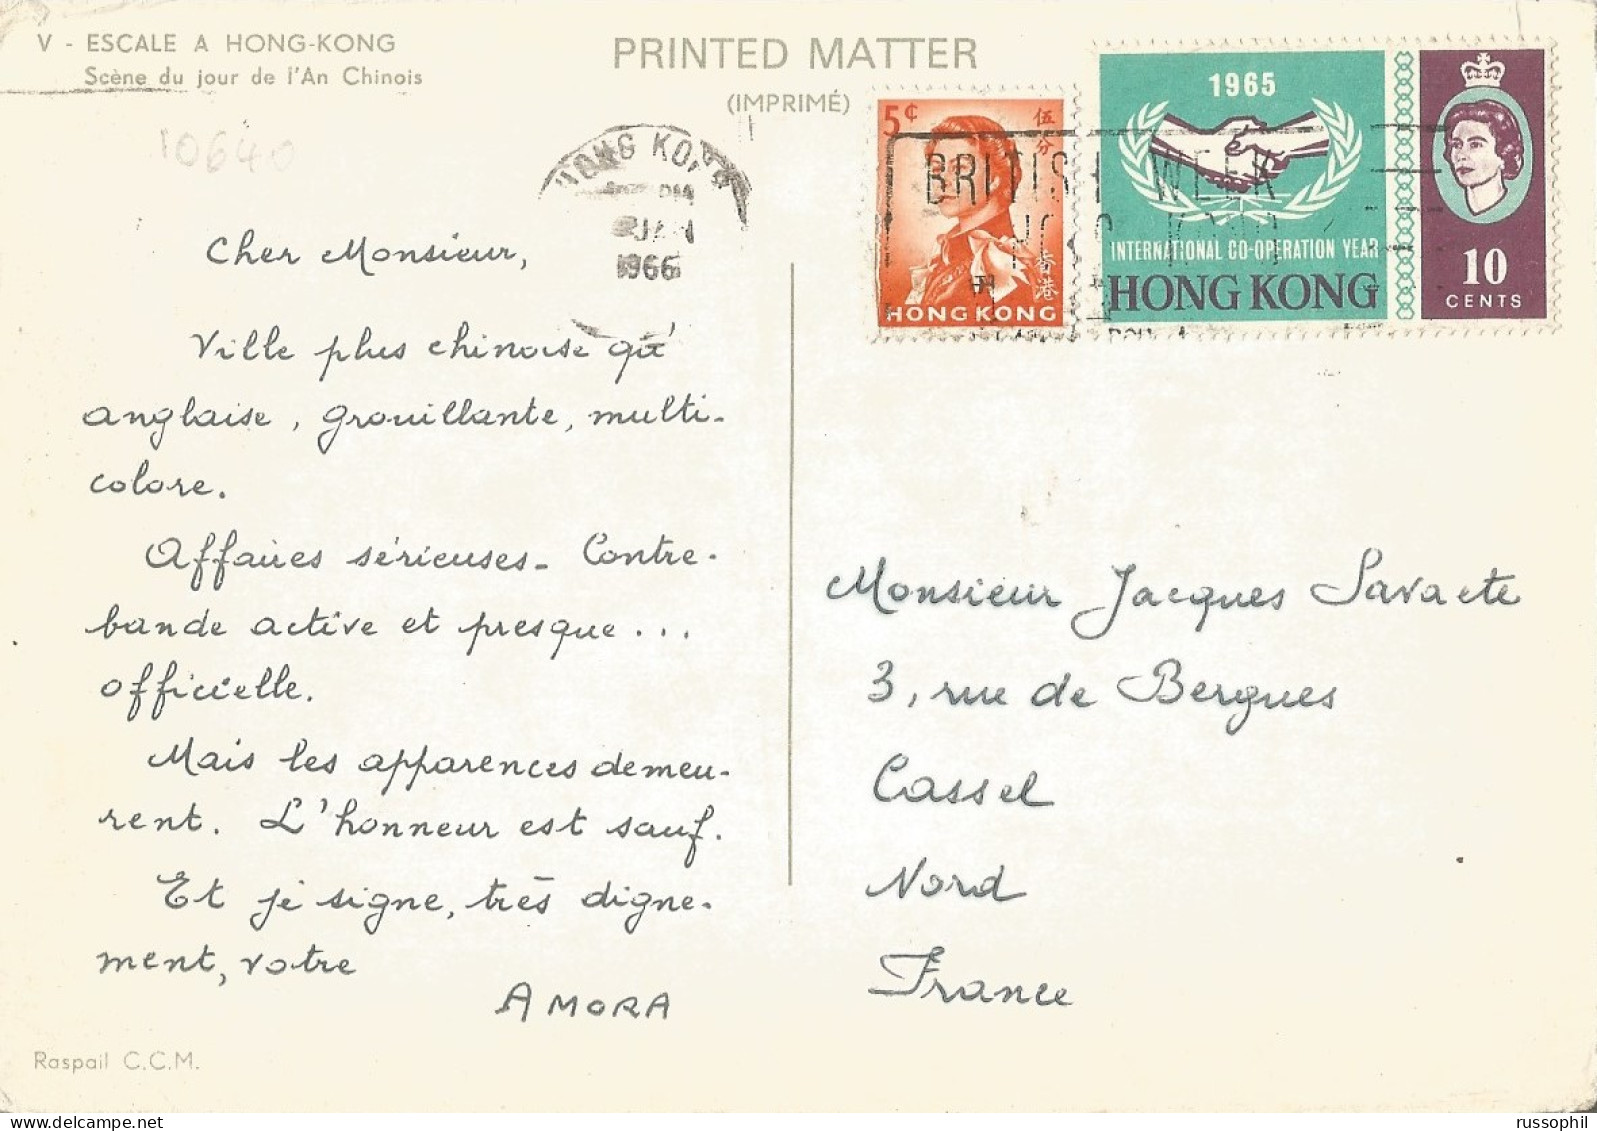 V - ESCALE A HONG-KONG
Scène du jour de l'An Chinois
PRINTED MATTER
(IMPRIMÉ)
10640
HONG KONG
PM
JAN
1966
5¢
伍分
香港
HONG KONG
1965
INTERNATIONAL CO-OPERATION YEAR
HONG KONG
10
CENTS
BRITISH WEEK
HONG KONG
Cher Monsieur,
Ville plus chinoise qu'
anglaise, grouillante, multi-
colore.
Affaires sérieuses - Contre-
bande active et presque...
officielle.
Mais les apparences demeu-
rent. L'honneur est sauf.
Et je signe, très digne-
ment, votre
AMORA
Monsieur Jacques Savaete
3, rue de Bergues
Cassel
Nord
France
Raspail C.C.M.
russophil